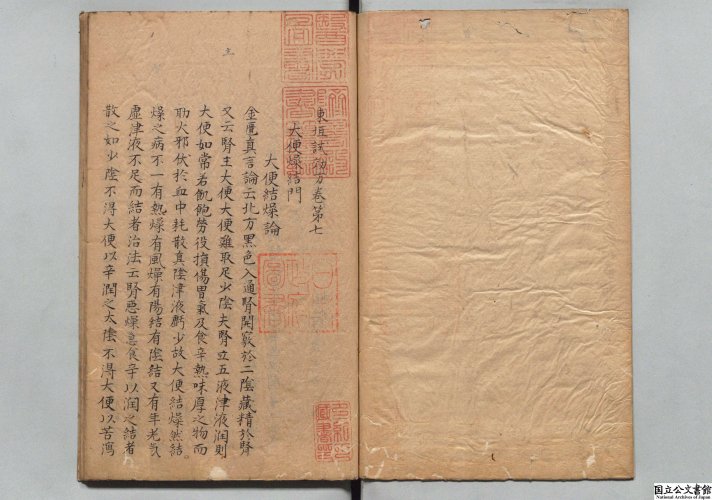 東垣試效方卷第七
大便燥結門
大便結燥論
金匱真言論云北方黑色入通腎開竅於二陰藏精於腎
又云腎主大便大便難取足少陰夫腎主五液津液潤則
大便如常若飢飽勞役損傷胃氣及食辛熱味厚之物而
助火邪伏於血中耗散真陰津液虧少故大便結燥然結
燥之病不一有熱燥有風燥有陽結有陰結又有年老氣
虛津液不足而結者治法云腎惡燥急食辛以潤之結者
散之如少陰不得大便以辛潤之太陰不得大便以苦瀉
国立公文書館
National Archives of Japan